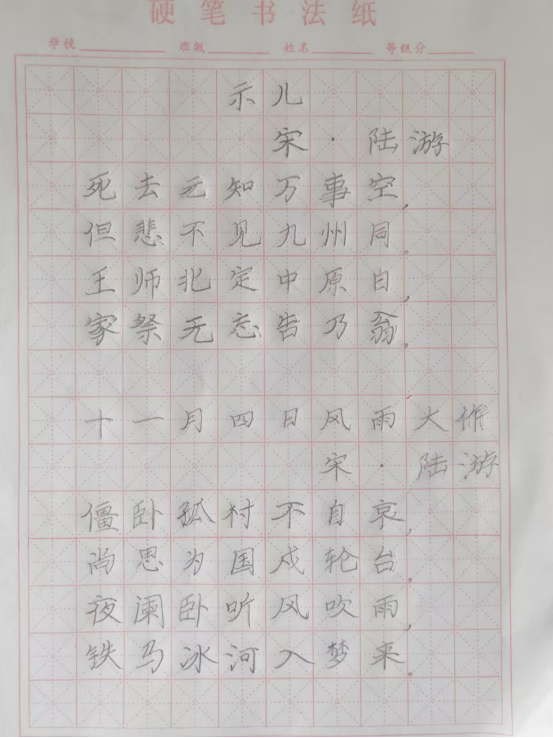 硬笔书法纸
学校 班级 姓名 等级分
示儿
宋·陆游
死去元知万事空,
但悲不见九州同。
王师北定中原日,
家祭无忘告乃翁。
十一月四日风雨大作
宋·陆游
僵卧孤村不自哀,
尚思为国戍轮台。
夜阑卧听风吹雨,
铁马冰河入梦来。